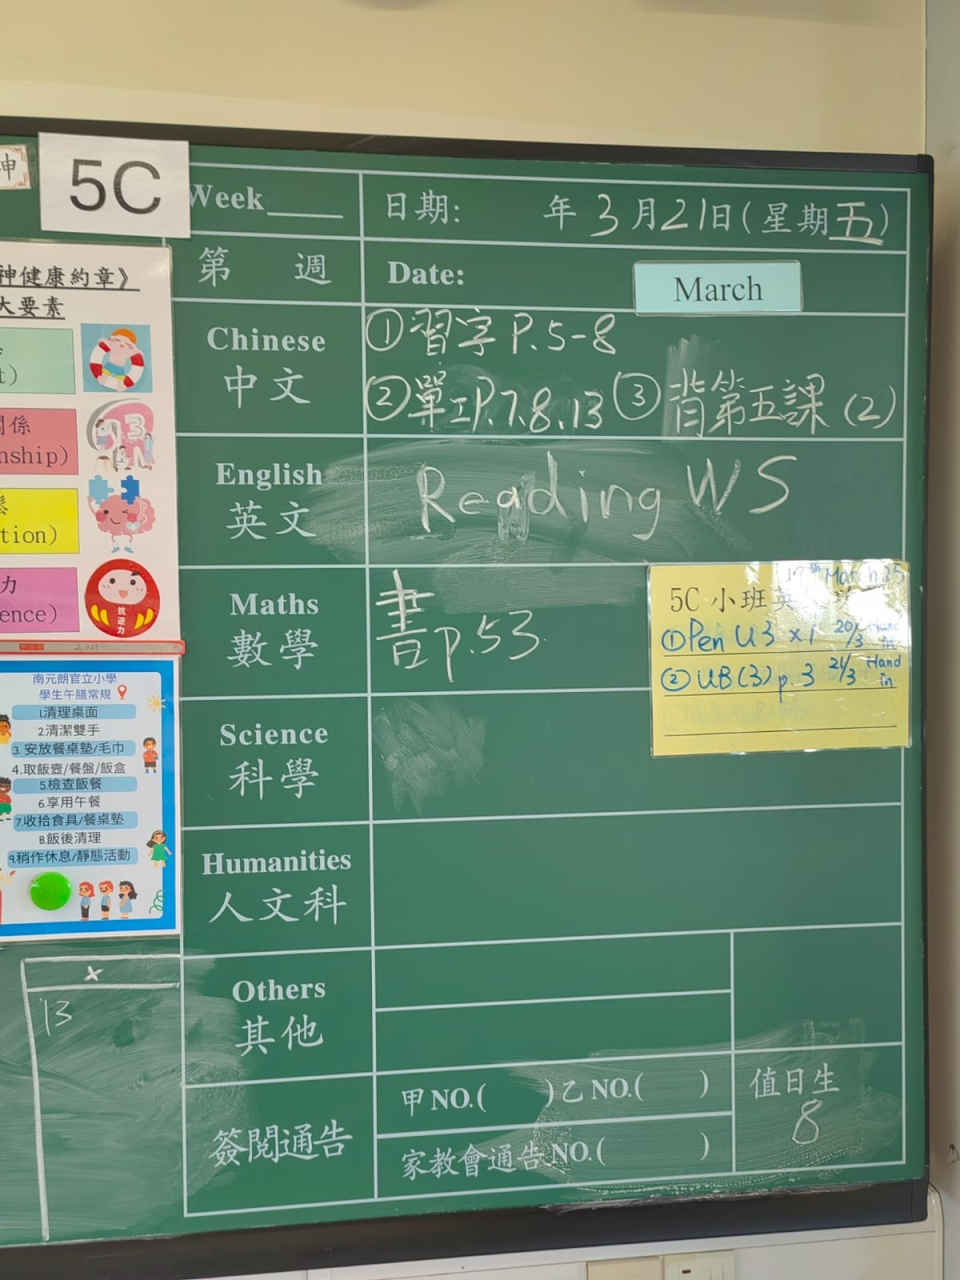 5C
Week
日期: 年3月21日(星期五)
第 週
Date:
March
Chinese
中文
①習字 P.5-8
②單工P.7.8.13 ③背第五課(2)
English
英文
Reading WS
Maths
數學
書p.53
17th March 25
5C 小班英
①Pen U3 x1 20/3 Hand in
②UB(3) p.3 21/3 Hand in
Science
科學
Humanities
人文科
Others
其他
簽閱通告
甲NO.( )乙NO.( )
家教會通告NO.( )
值日生
8
神
神健康約章》
大要素
t)
關係
nship)
鬆
tion)
力
ence)
抗逆力
南元朗官立小學
學生午膳常規
1.清理桌面
2.清潔雙手
3.安放餐桌墊/毛巾
4.取飯壺/餐盤/飯盒
5.檢查飯餐
6.享用午餐
7.收拾食具/餐桌墊
8.飯後清理
9.稍作休息/靜態活動
x
13